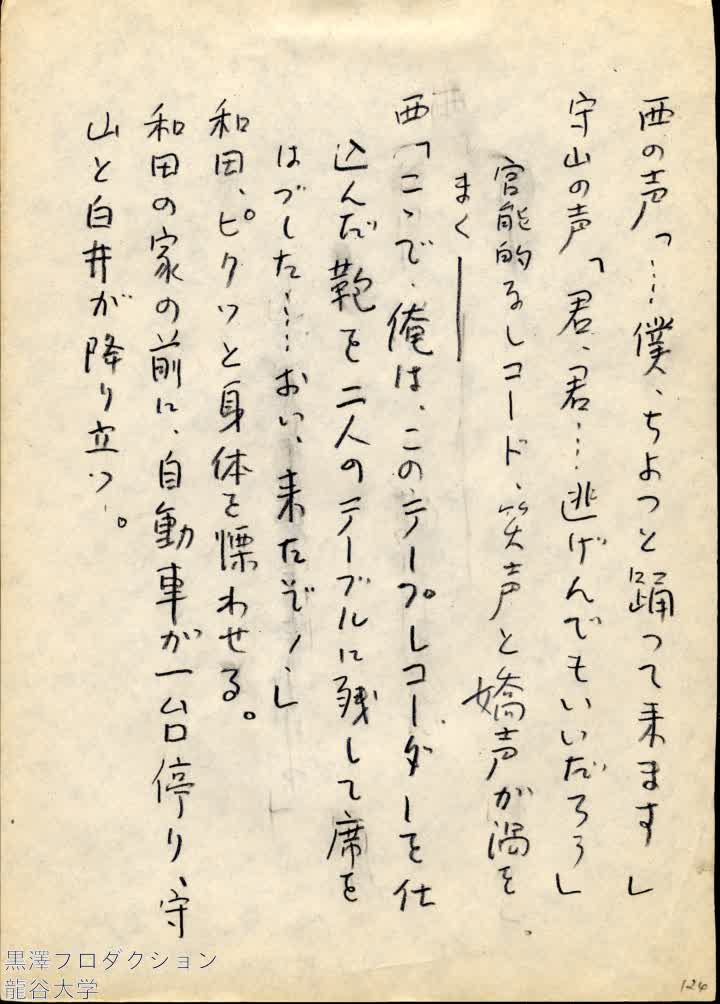 西の声「……僕、ちょっと踊って来ます」
守山の声「君、君……逃げんでもいいだろう」
官能的なレコード、笑声と嬌声が渦を
まく――
西「こゝで、俺は、このテープレコーダーを仕
込んだ鞄を二人のテーブルに残して席を
はづした……おい、来たぞ!」
和田、ピクッと身体を慄わせる。
和田の家の前に、自動車が一台停り、守
山と白井が降り立つ。
126
黒澤プロダクション
龍谷大学